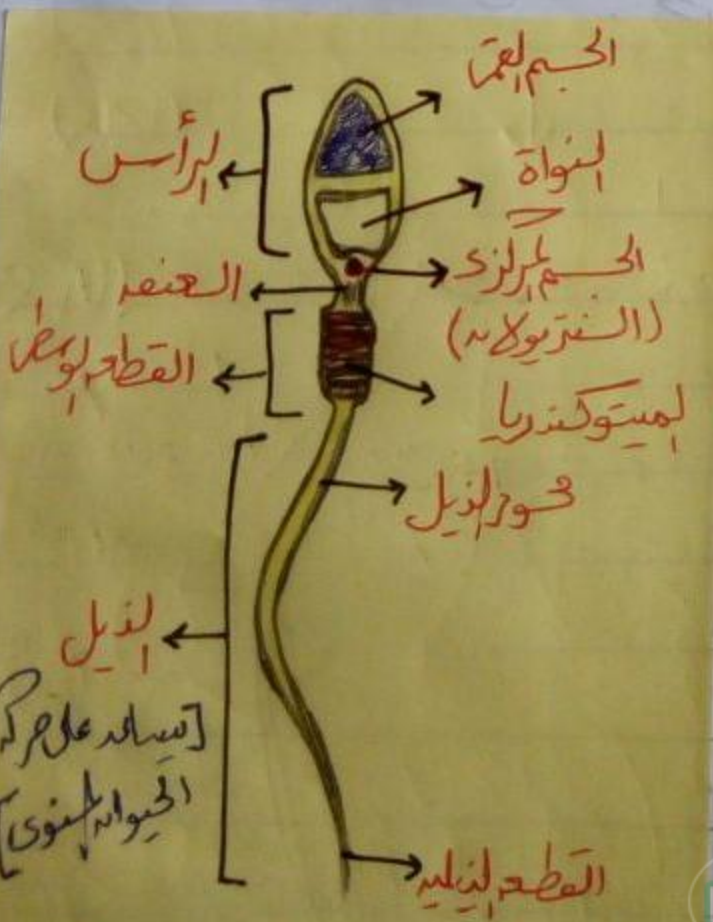 الجسم القمى
الرأس
النواة
الجسم المركزى
(السنتريولان)
العنق
القطعه الوسطى
الميتوكندريا
محور الذيل
الذيل
[تساعد على حركة
الحيوان المنوى]
القطعه الذيليه